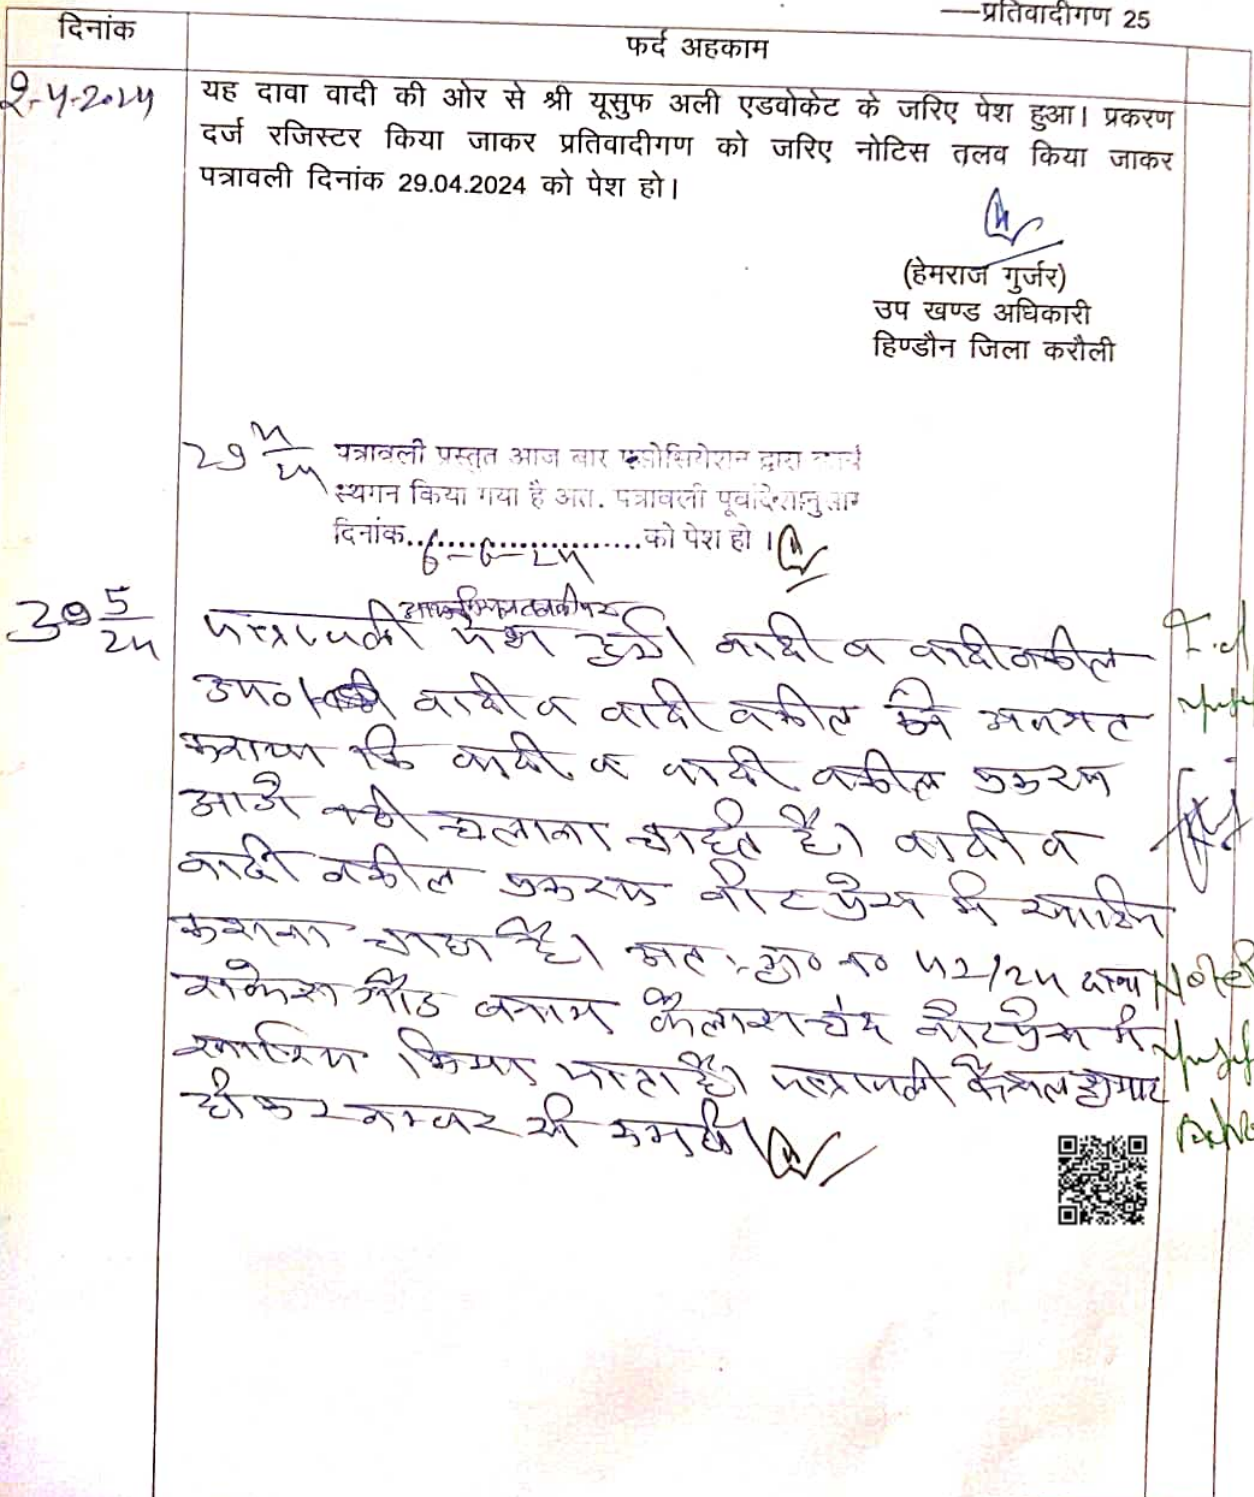 —प्रतिवादीगण 25
दिनांक
फर्द अहकाम
2-4-2024
यह दावा वादी की ओर से श्री यूसुफ अली एडवोकेट के जरिए पेश हुआ। प्रकरण
दर्ज रजिस्टर किया जाकर प्रतिवादीगण को जरिए नोटिस तलव किया जाकर
पत्रावली दिनांक 29.04.2024 को पेश हो।
(हेमराज गुर्जर)
उप खण्ड अधिकारी
हिण्डौन जिला करौली
29 4/24 पत्रावली प्रस्तुत आज बार एसोसियेशन द्वारा कार्य
स्थगन किया गया है अत. पत्रावली पूर्वादेशानुसार
दिनांक..6-6-24..को पेश हो ।
30 5/24
पत्रावली पेश हुई। वादी व वादी वकील
उप० वादी व वादी वकील ने अवगत
कराया कि वादी व वादी वकील प्रकरण
आगे नही चलाना चाहते है। वादी व
वादी वकील प्रकरण नोट प्रेस में खारिज
कराना चाहा है। अतः प्र० न० 42/24
राकेश गौड बनाम कैलाश चंद नोट प्रेस में
खारिज किया जाता है। पत्रावली फैसल शुमार
होकर नम्बर से कम हो।